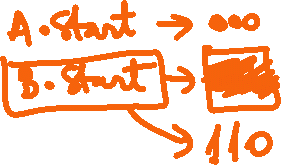 A. Start → ooo
B. Start →
→ 110